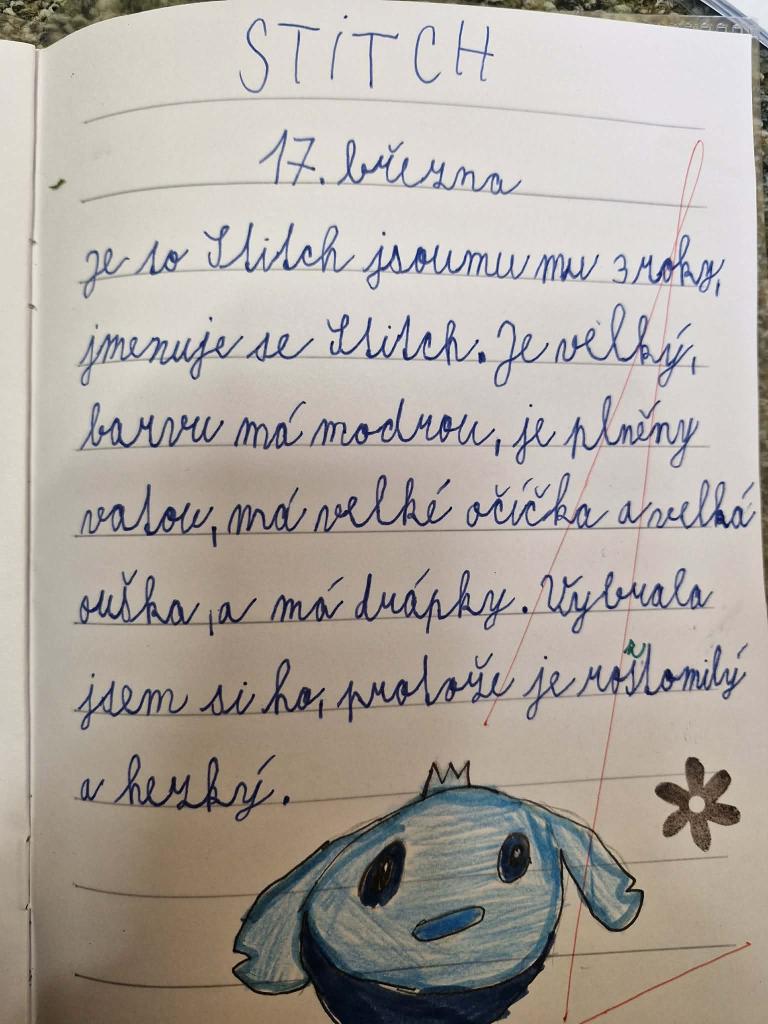 STITCH
17. března
Je to Stitch jsoumu mu 3 roky,
jmenuje se Stitch. Je velký,
barvu má modrou, je plněny
vatou, má velké očíčka a velká
ouška, a má drápky. Vybrala
jsem si ho, protože je roštomilý
a hezký.